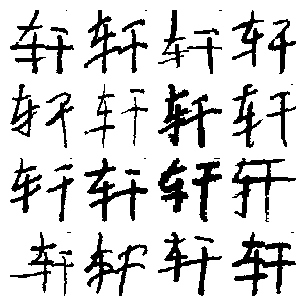 轩轩轩轩
轩轩轩轩
轩轩轩轩
轩轩轩轩